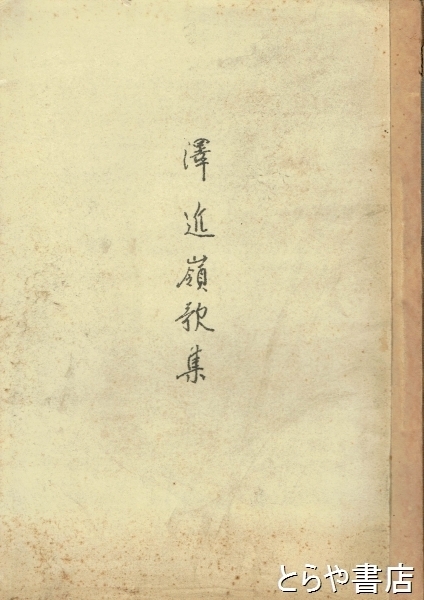 澤進嶺歌集
とらや書店